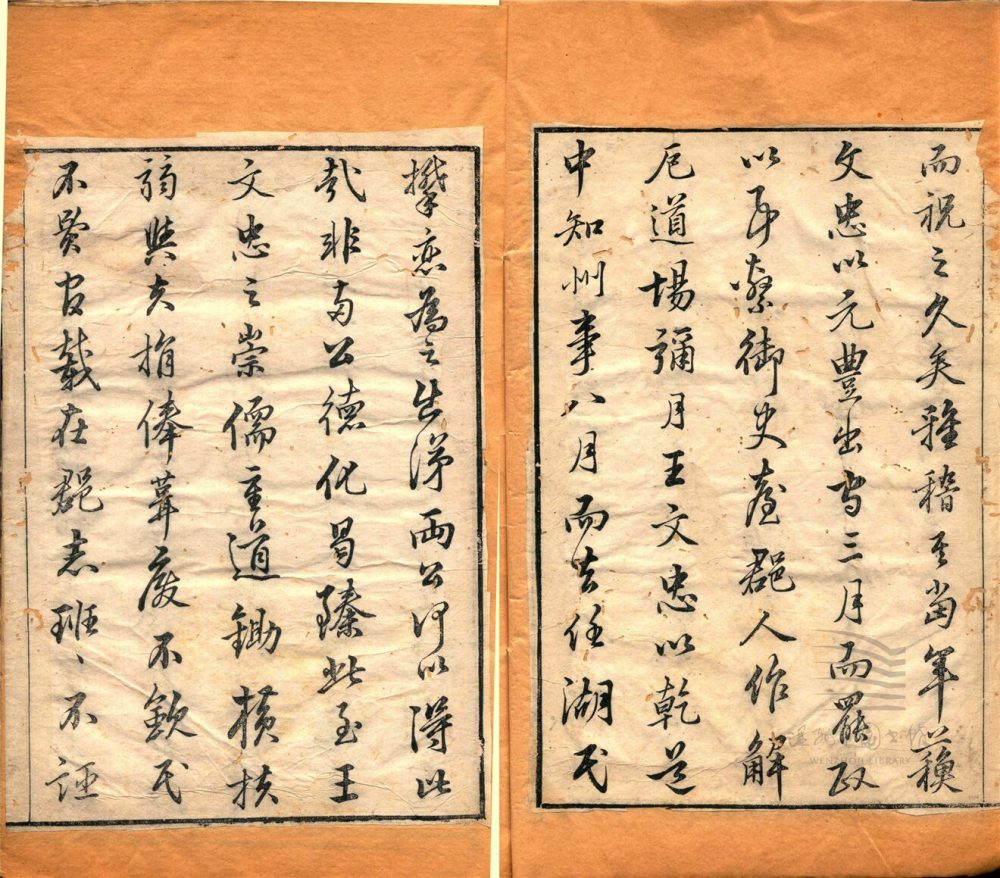 而祝之久矣雅稽至當年蘇
文忠以元豐出守三月而罷政
以事繫御史臺郡人作解
厄道場彌月王文忠以乾道
中知州事八月而去任湖民
攀戀為之出涕兩公何以得此
哉非兩公德化曷臻此至王
文忠之崇儒重道鋤橫扶
弱與夫捐俸葺廢不斂民
不費官載在郡志班班不誣
WENZHOU LIBRARY